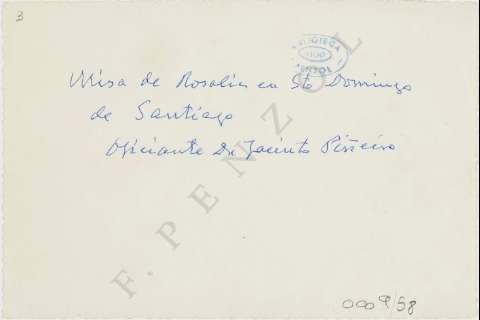 3
BIBLIOTECA
PENZOL
Misa de Rosalía en Sto Domingo
de Santiago
Oficiante D. Jacinto Piñeiro
F. PENZOL
0009/58